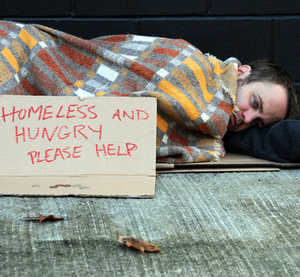 HOMELESS AND
HUNGRY
PLEASE HELP